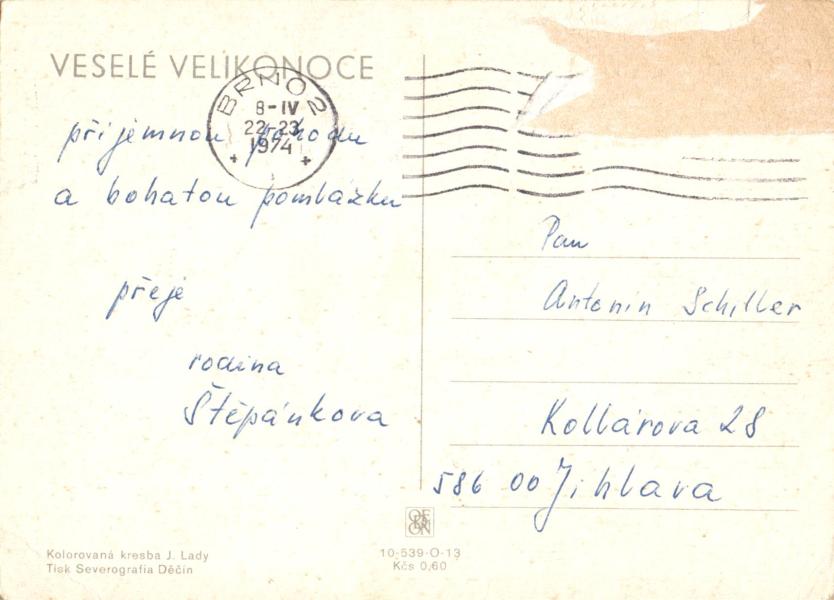 VESELÉ VELIKONOCE
BRNO 2
8-IV
22-23
1974
příjemnou pohodu
a bohatou pomlázku
přeje
rodina
Štěpánkova
Pan
Antonín Schiller
Kollárova 28
586 00 Jihlava
Kolorovaná kresba J. Lady
Tisk Severografia Děčín
10-539-O-13
Kčs 0,60